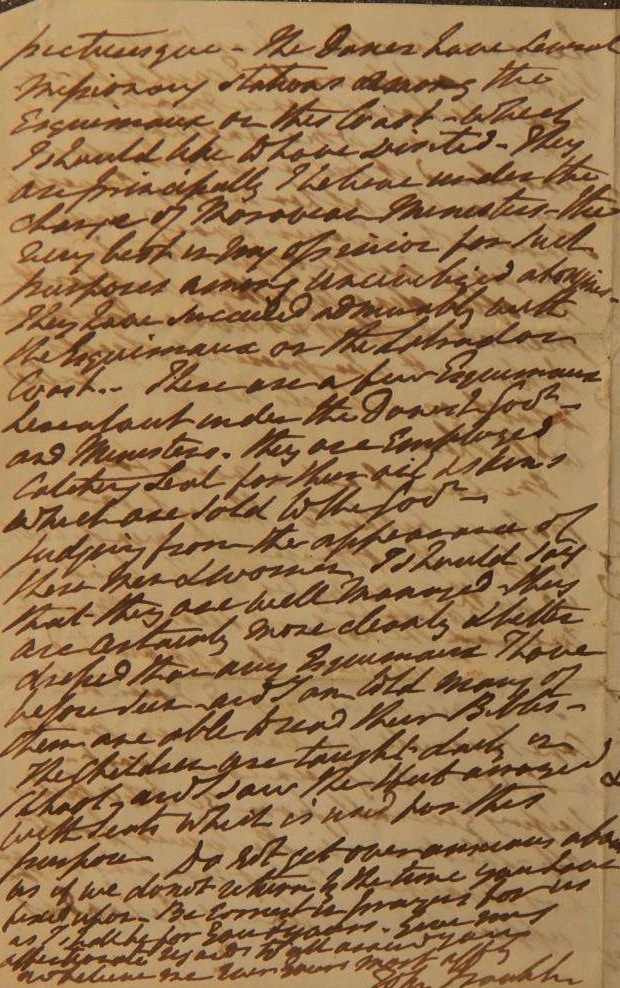 picturesque - The Danes have several
Missionary Stations among the
Esquimaux on this Coast - which
I should like to have visited - They
are principally I believe under the
charge of Moravian Ministers - the
very best in my opinion for such
purposes among uncivilized aborigines -
They have succeeded admirably with
the Esquimaux on the Labrador
Coast. - There are a few Esquimaux
hereabout under the Danish Govt
and Ministers. they are Employed
catching Seal for their oil & skins
which are sold to the Govt -
Judging from the appearance of
these Men & women, I should say
that they are well managed - they
are certainly more cleanly & better
dressed than any Esquimaux I have
before seen and I am told many of
them are able to read their Bibles -
The Children are taught daily in
School, and I saw the Hut arranged
with seats which is used for this
purpose Do not get over anxious about
us if we do not return by the time you have
fixed upon - Be constant in prayers for us
as I shall be for you & yours. Give my
affectionate regards to all around you
and believe me Ever yours most affly
John Franklin